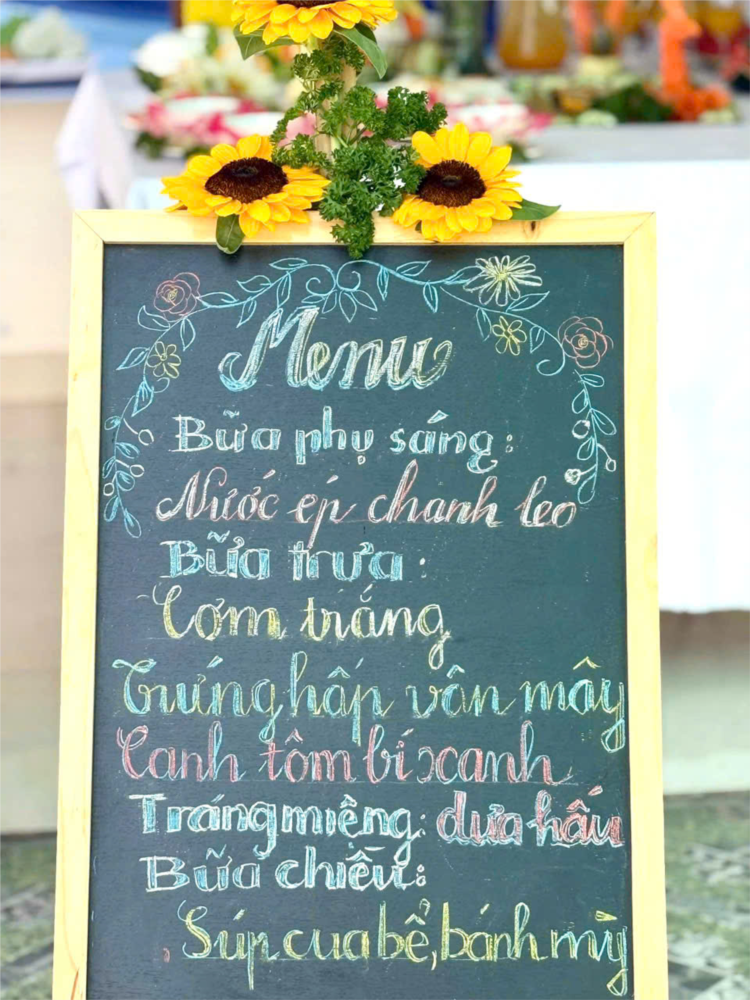 Menu
Bữa phụ sáng:
Nước ép chanh leo
Bữa trưa:
Cơm trắng
Trứng hấp vân mây
Canh tôm bí xanh
Tráng miệng: dưa hấu
Bữa chiều:
Súp cua bể, bánh mỳ